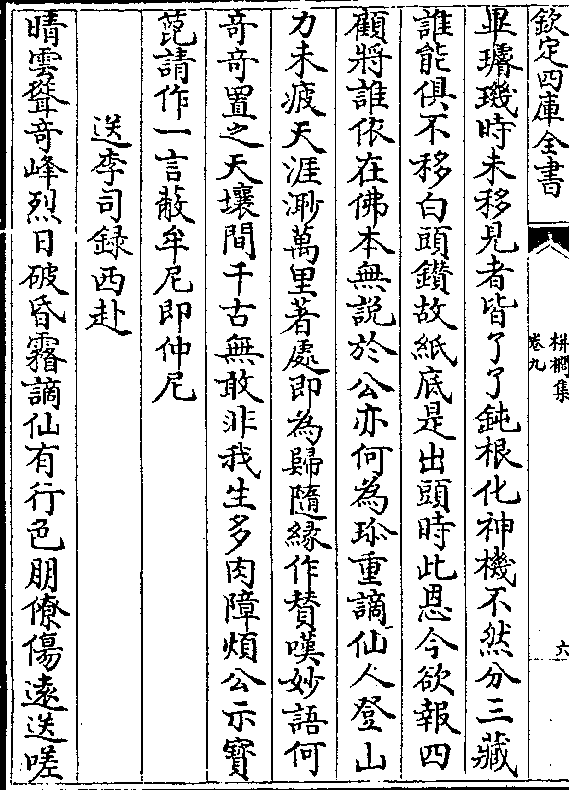 欽定四庫全書
栟櫚集
卷九
六
畢璿璣時未移見者皆了了鈍根化神機不然分三藏
誰能俱不移白頭鑚故紙底是出頭時此恩今欲報四
顧將誰依在佛本無説於公亦何為珎重謫仙人登山
力未疲天涯渺萬里著處即為歸隨緣作賛嘆妙語何
奇奇置之天壤間千古無敢非我生多肉障煩公示寳
蓖請作一言蔽牟尼即仲尼
送李司録西赴
晴雲聳奇峰烈日破昏霧謫仙有行色朋僚傷逺送嗟